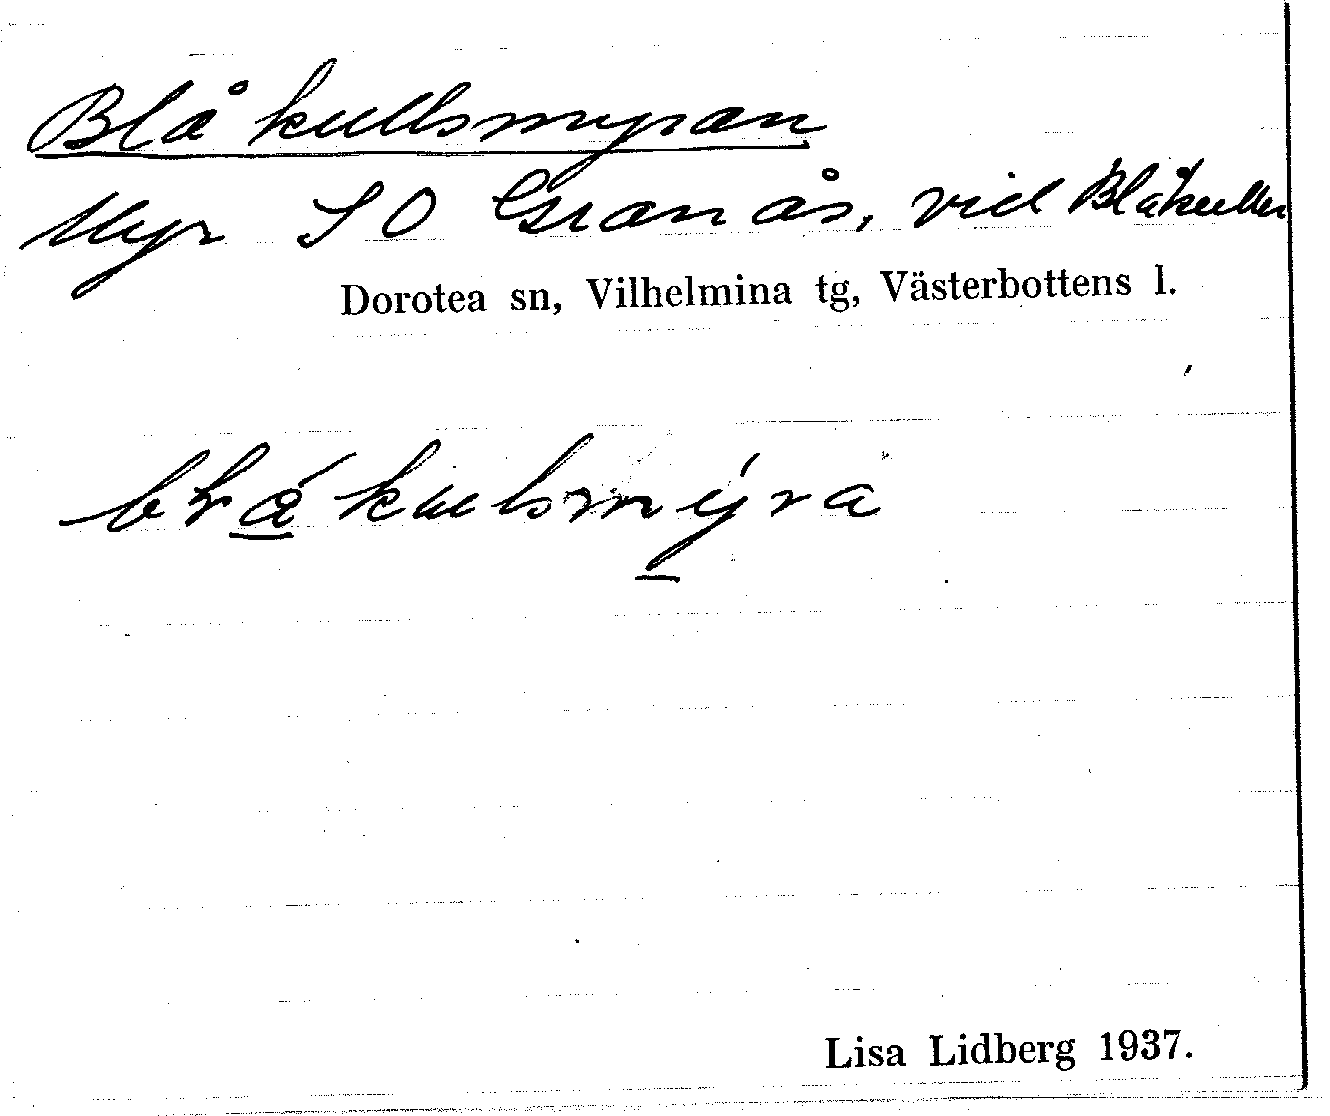 Blåkullsmyran
Myr SO Granås, vid Blåkullen
Dorotea sn, Vilhelmina tg, Västerbottens l.
blákulsmýra
Lisa Lidberg 1937.